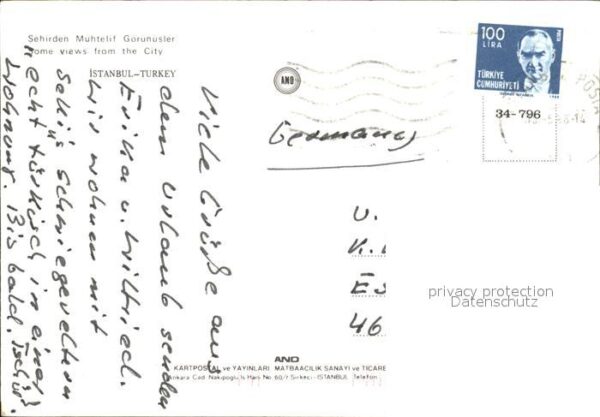 Şehirden Muhtelif Görünüşler
Some views from the City
İSTANBUL-TURKEY
AND
100
LIRA
TÜRKİYE
CUMHURİYETİ
34-796
Germany
Viele Grüße aus
dem Urlaub senden
Erika u. Wiltried.
Wir wohnen mit
Schwiegereltern
"echt türkisch in einer
Wohnung. Bis bald. Tschüs.
U.
K.
46
privacy protection
Datenschutz
AND
KARTPOSTAL ve YAYINLARI MATBAACILIK SANAYI ve TICARE
Ankara Cad. Nakipoğlu İş Hanı No 60/7 Sirkeci-ISTANBUL Telefon